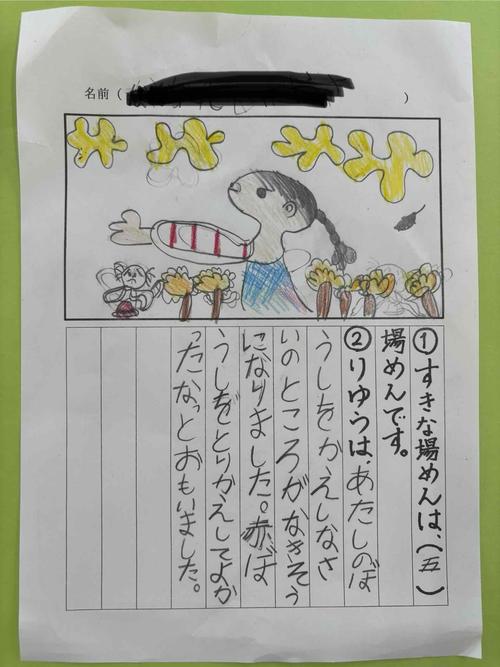 名前（ ）
①すきな場めんは、（五）
場めんです。
②りゆうは、あたしのぼ
うしをかえしなさ
いのところがなきそう
になりました。赤ぼ
うしをとりかえしてよか
ったなっとおもいました。